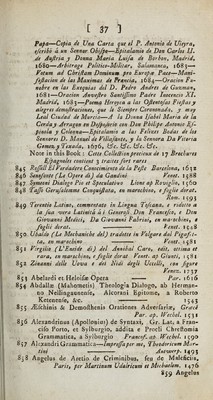 [ 37 ]
Papa—Copia de Una Carta que el P. Antonio de Uieyra,
escribè à un Senor Obispo—Epitalamio de Don Carlo II.
de Austria y Donna Maria Luisa de Borbon, Madrid,
1680—Arbitrage Politico-Militar, Salamanca, 1683—
Votum ad Christum Dominum pro Europæ Pace—Mani-
festacion de las Maximas de Francia, 1684—Oracion Fu-
nebre en las Exequias del D. Pedro Andres de Guzman,
1681—Oracion Anuestro Santissimo Padre Inocencio XI.
Madrid, 1683—Poema Heroyco a las Ostentosas Fiestas y
alegres demostraciones, que la Siempre Coronada, y muy
Leal Ciudad de Murcia—A la Donna Isabel Maria de la
Cerda y Arragon en Desposorio con Don Philipe Antonio E.
spinola y Colona—Epitalamio a las Felices Bodas de los
Senores D. Manoel de Filasfuerte, y la Senora Da Vitoria
Gomez y Tanada, 1676, &c. &c. &c.
Note in this Book : Cette Collection precieux de 17 Brochures
Espagnoles contient 3 traites fort rares
845 Russell El Verdadero Conocimiento de la Peste Barcelona, 1632
846 Senofonte (Le Opere di) da Gandini Venet. 1588
847 Symeoni Dialogo Pio et Speculativo Lione ap Roviglio, 1560
848 Tassi Gerusalemme Conquistata, en marochino, e foglie dorat.
Rom. 1593
849 Terentio Latino, commentato in Lingua Toscana, e ridotto a
la sua vera Latinità à i Generosi Don Francesco, e Don
Giovanni Medici, Da Giovanni Fabrini, en marochino, e
foglii dorat. Venet. 1548
850 Ubaldo (Le Mechaniche del) tradotte in Volgare dal Pigafet-
ta, en marochino Venet. 1581
851 Virgilio (L'Eneida di) del Annibal Caro, edit. ottima et
rara, en marochino, e foglie dorat. Venet. ap Giunti, 1581
852 Zinanni delle Uova e dei Nidi degli Uccelli, con figure
Venez. 1737
853 Abelardi et Heloisæ Opera Par. 1616
854 Abdallæ (Mahometis) Theologia Dialogo, ab Hermano
no Nellingaunense, Alcorani Epitome, a Roberto
Ketenense, &c. 1543
855 Æschinis & Demosthenis Orationes Adversariæ, Græcè
Par. ap. Wechel. 1531
856 Alexandrinus (Apollonius) de Syntaxi, Gr. Lat. a Fran-
cisc Porto, et Sylburgio, addita e Presb Chrestoma
Grammatica, a Sylburgio Francof. ap. Wechel. 1590
857 Alexandri Grammatica—Impressa per me, Theodoricum Mar-
tini Antwerp. 1493
858 Angelus de Aretio de Criminibus, seu de Maleficiis,
Paris, per Martinum Udalricum et Michaelem. 1476
859 Angelus